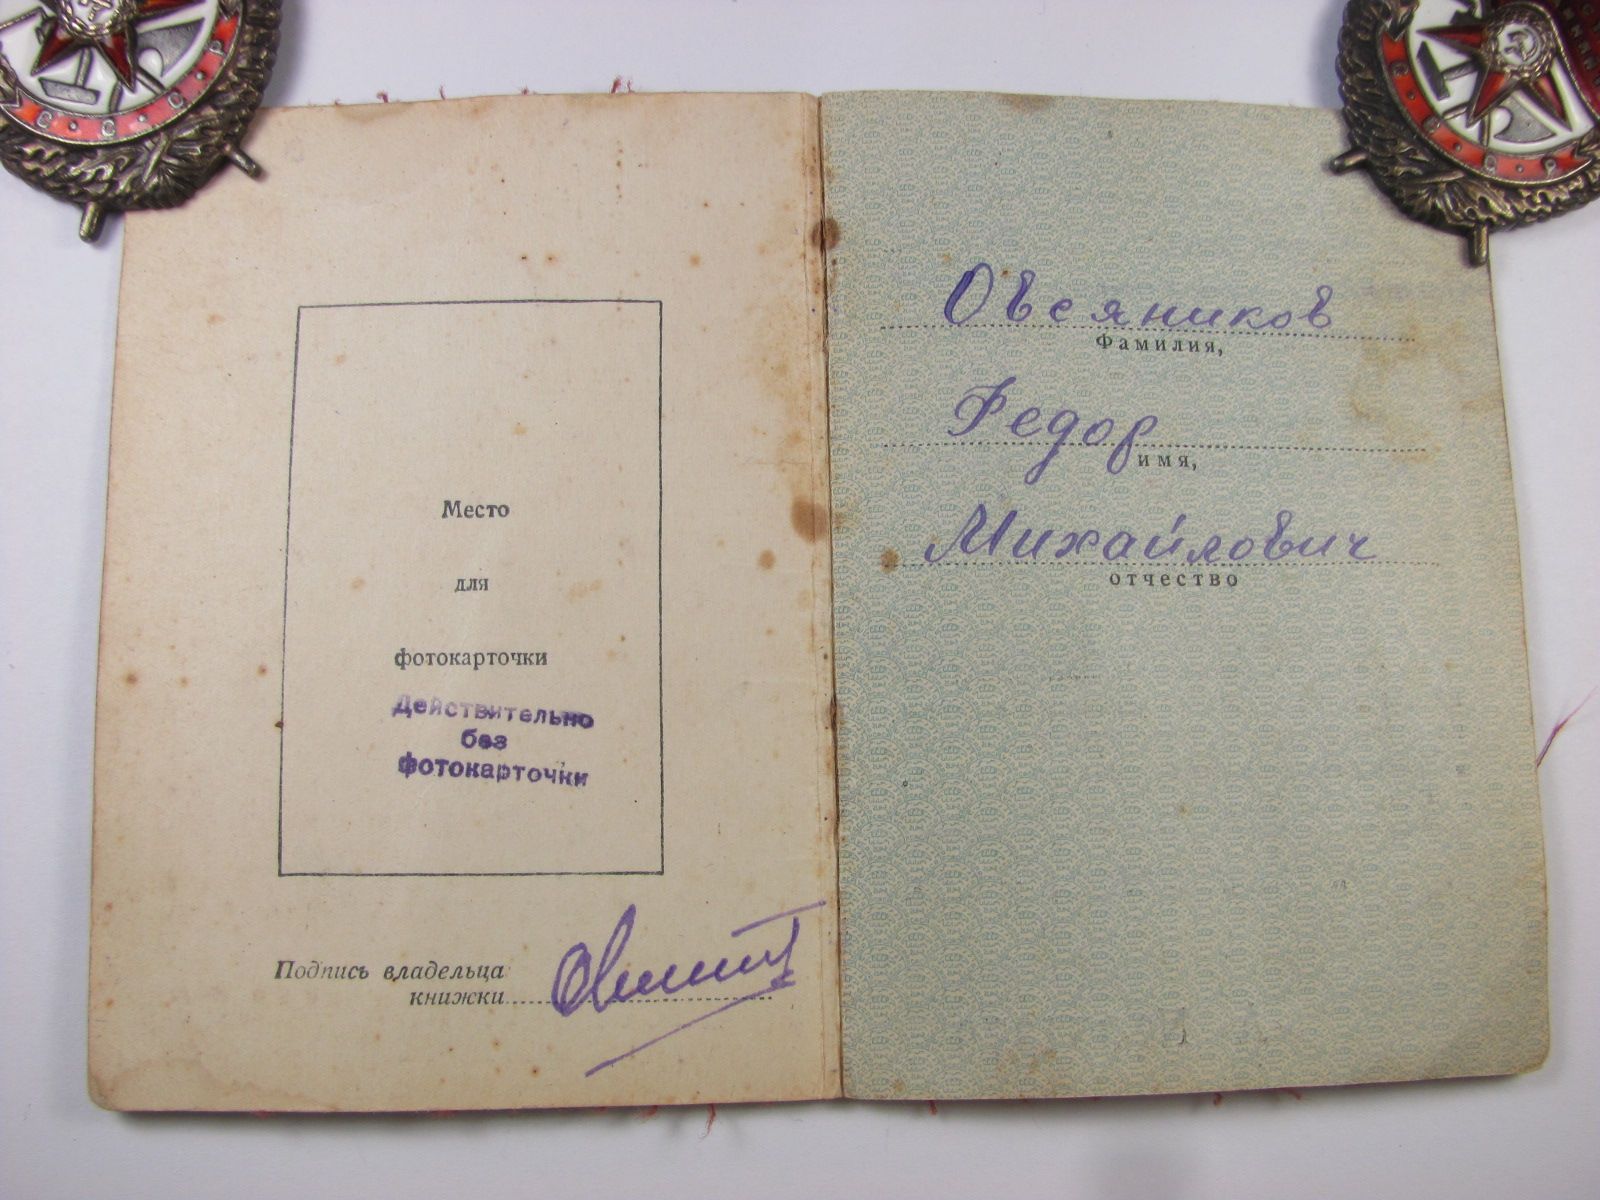 Место
для
фотокарточки
Действительно
без
фотокарточки
Подпись владельца
книжки
Овсяников
Фамилия,
Федор
имя,
Михайлович
отчество